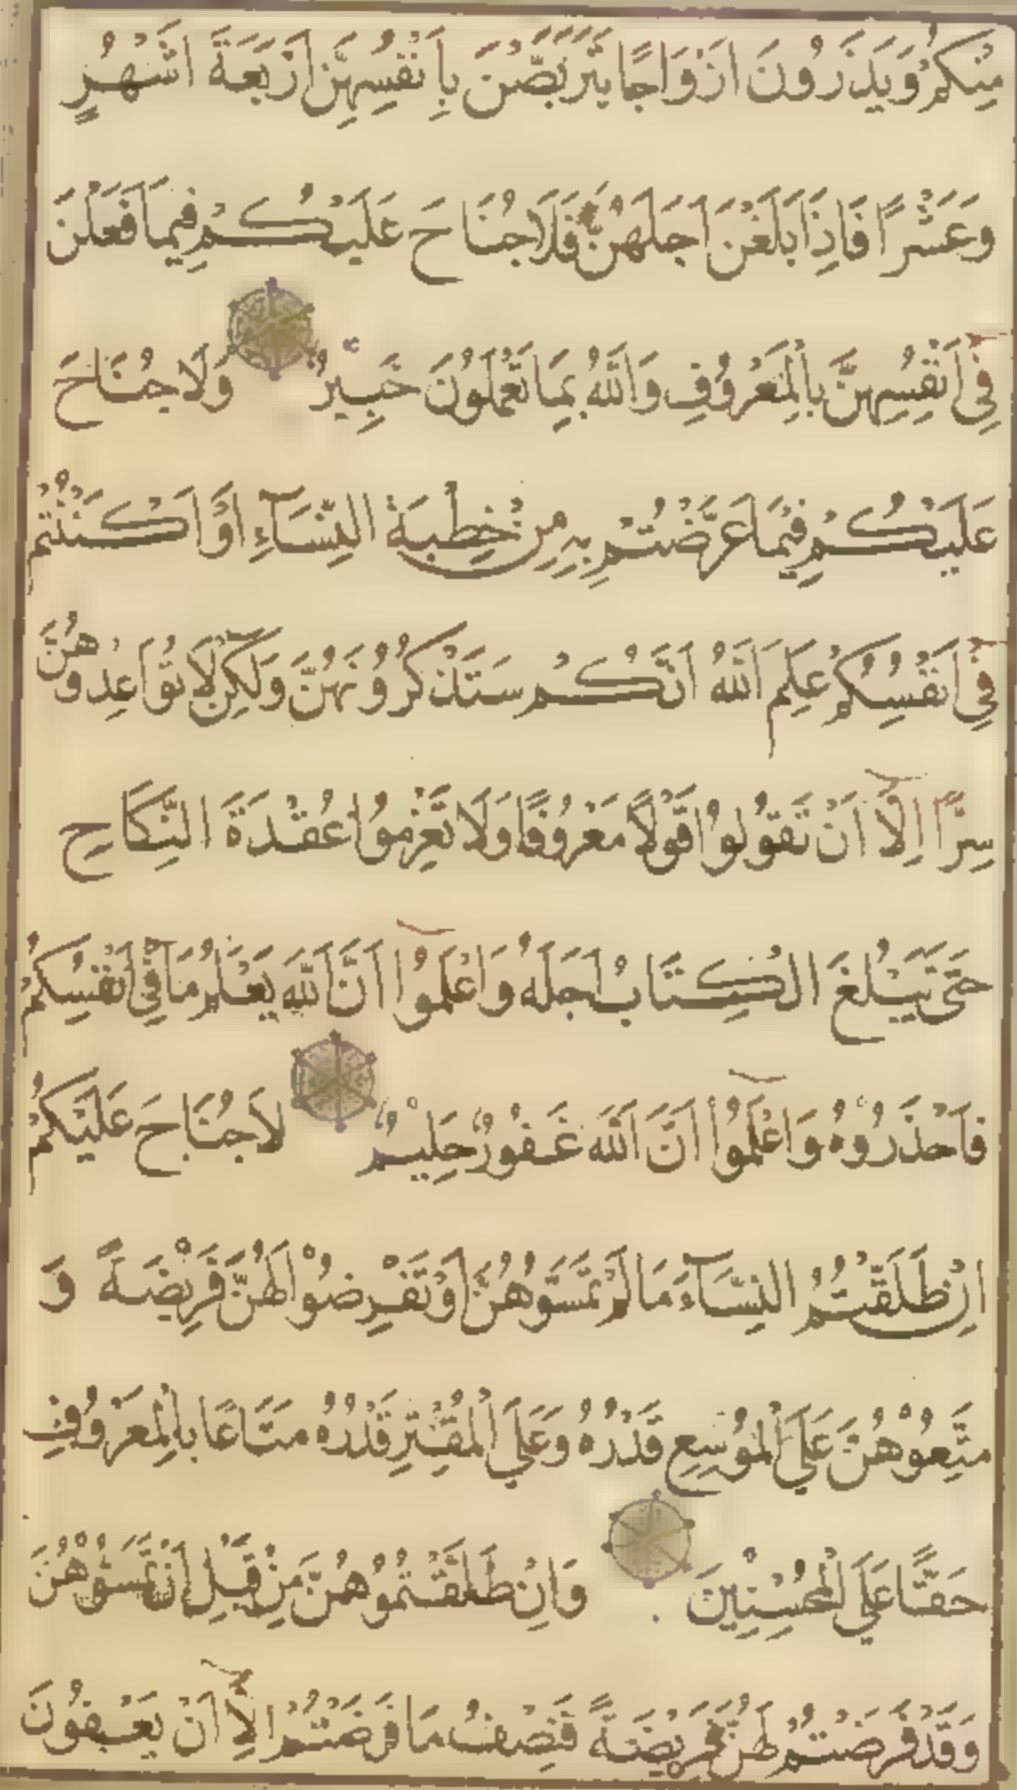 مِنْكُمْ وَيَذَرُونَ اَزْوَاجًا يَتَرَبَّصْنَ بِاَنْفُسِهِنَّ اَرْبَعَةَ اَشْهُرٍ
وَعَشْرًا فَاِذَا بَلَغْنَ اَجَلَهُنَّ فَلَا جُنَاحَ عَلَيْكُمْ فِيمَا فَعَلْنَ
فِى اَنْفُسِهِنَّ بِالْمَعْرُوفِ وَاللّٰهُ بِمَا تَعْمَلُونَ خَبِيرٌ وَلَا جُنَاحَ
عَلَيْكُمْ فِيمَا عَرَّضْتُمْ بِهِ مِنْ خِطْبَةِ النِّسَآءِ اَوْ اَكْنَنْتُمْ
فِى اَنْفُسِكُمْ عَلِمَ اللّٰهُ اَنَّكُمْ سَتَذْكُرُونَهُنَّ وَلٰكِنْ لَا تُوَاعِدُوهُنَّ
سِرًّا اِلَّآ اَنْ تَقُولُوا قَوْلًا مَعْرُوفًا وَلَا تَعْزِمُوا عُقْدَةَ النِّكَاحِ
حَتّٰى يَبْلُغَ الْكِتَابُ اَجَلَهُ وَاعْلَمُوٓا اَنَّ اللّٰهَ يَعْلَمُ مَا فِى اَنْفُسِكُمْ
فَاحْذَرُوهُ وَاعْلَمُوٓا اَنَّ اللّٰهَ غَفُورٌ حَلِيمٌ لَا جُنَاحَ عَلَيْكُمْ
اِنْ طَلَّقْتُمُ النِّسَآءَ مَا لَمْ تَمَسُّوهُنَّ اَوْ تَفْرِضُوا لَهُنَّ فَرِيضَةً وَ
مَتِّعُوهُنَّ عَلَى الْمُوسِعِ قَدَرُهُ وَعَلَى الْمُقْتِرِ قَدَرُهُ مَتَاعًا بِالْمَعْرُوفِ
حَقًّا عَلَى الْمُحْسِنِينَ وَاِنْ طَلَّقْتُمُوهُنَّ مِنْ قَبْلِ اَنْ تَمَسُّوهُنَّ
وَقَدْ فَرَضْتُمْ لَهُنَّ فَرِيضَةً فَنِصْفُ مَا فَرَضْتُمْ اِلَّآ اَنْ يَعْفُونَ